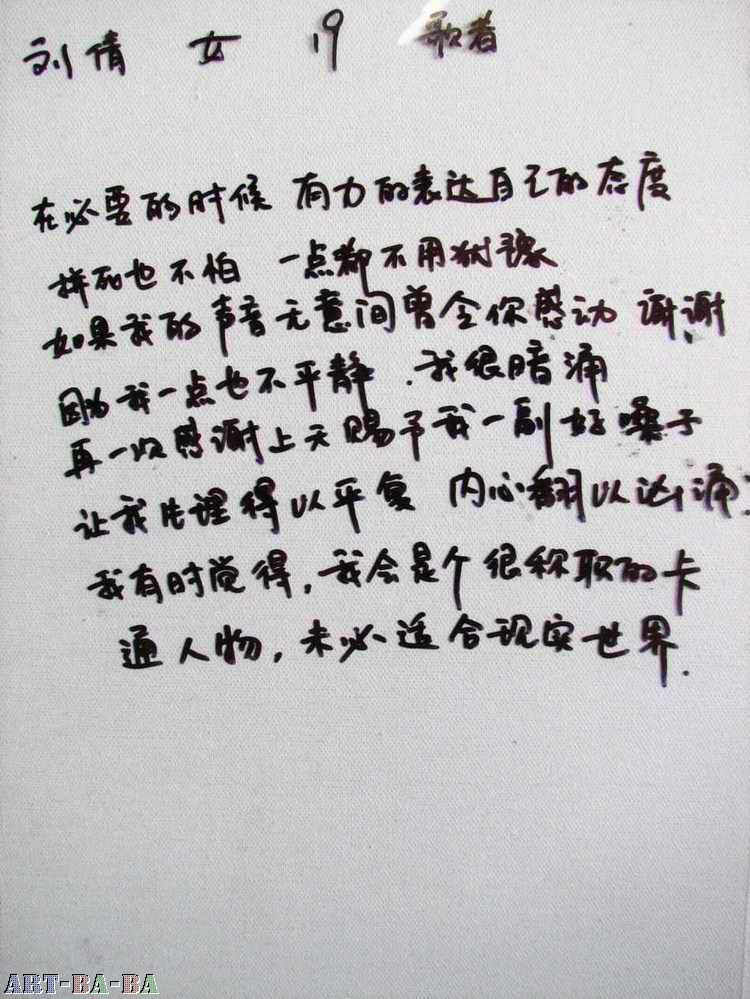 刘倩 女 19 歌者
在必要的时候 有力的表达自己的态度
拼死也不怕 一点都不用犹豫
如果我的声音无意间曾令你感动 谢谢
因为我一点也不平静.我很暗涌
再一次感谢上天赐予我一副好嗓子
让我生理得以平复 内心翻以达涌
我有时觉得,我会是个很称职的卡
通人物,未必适合现实世界.
ART-BA-BA